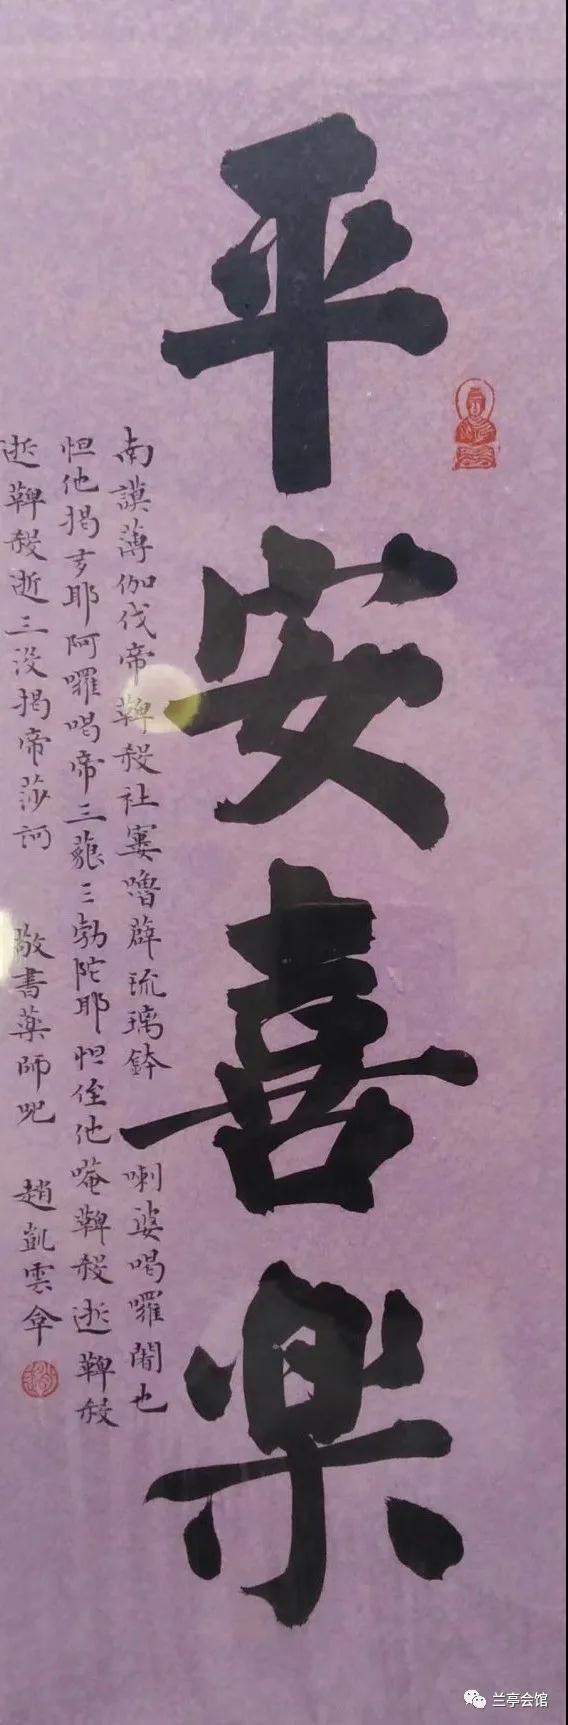 平安喜楽
南謨薄伽伐帝鞞殺社窶嚕薜琉璃鉢喇婆喝囉闍也
怛他揭多耶阿囉喝帝三藐三勃陀耶怛侄他唵鞞殺逝鞞殺
逝鞞殺逝三没揭帝莎訶 敬書藥師咒 趙凱雲
兰亭会馆